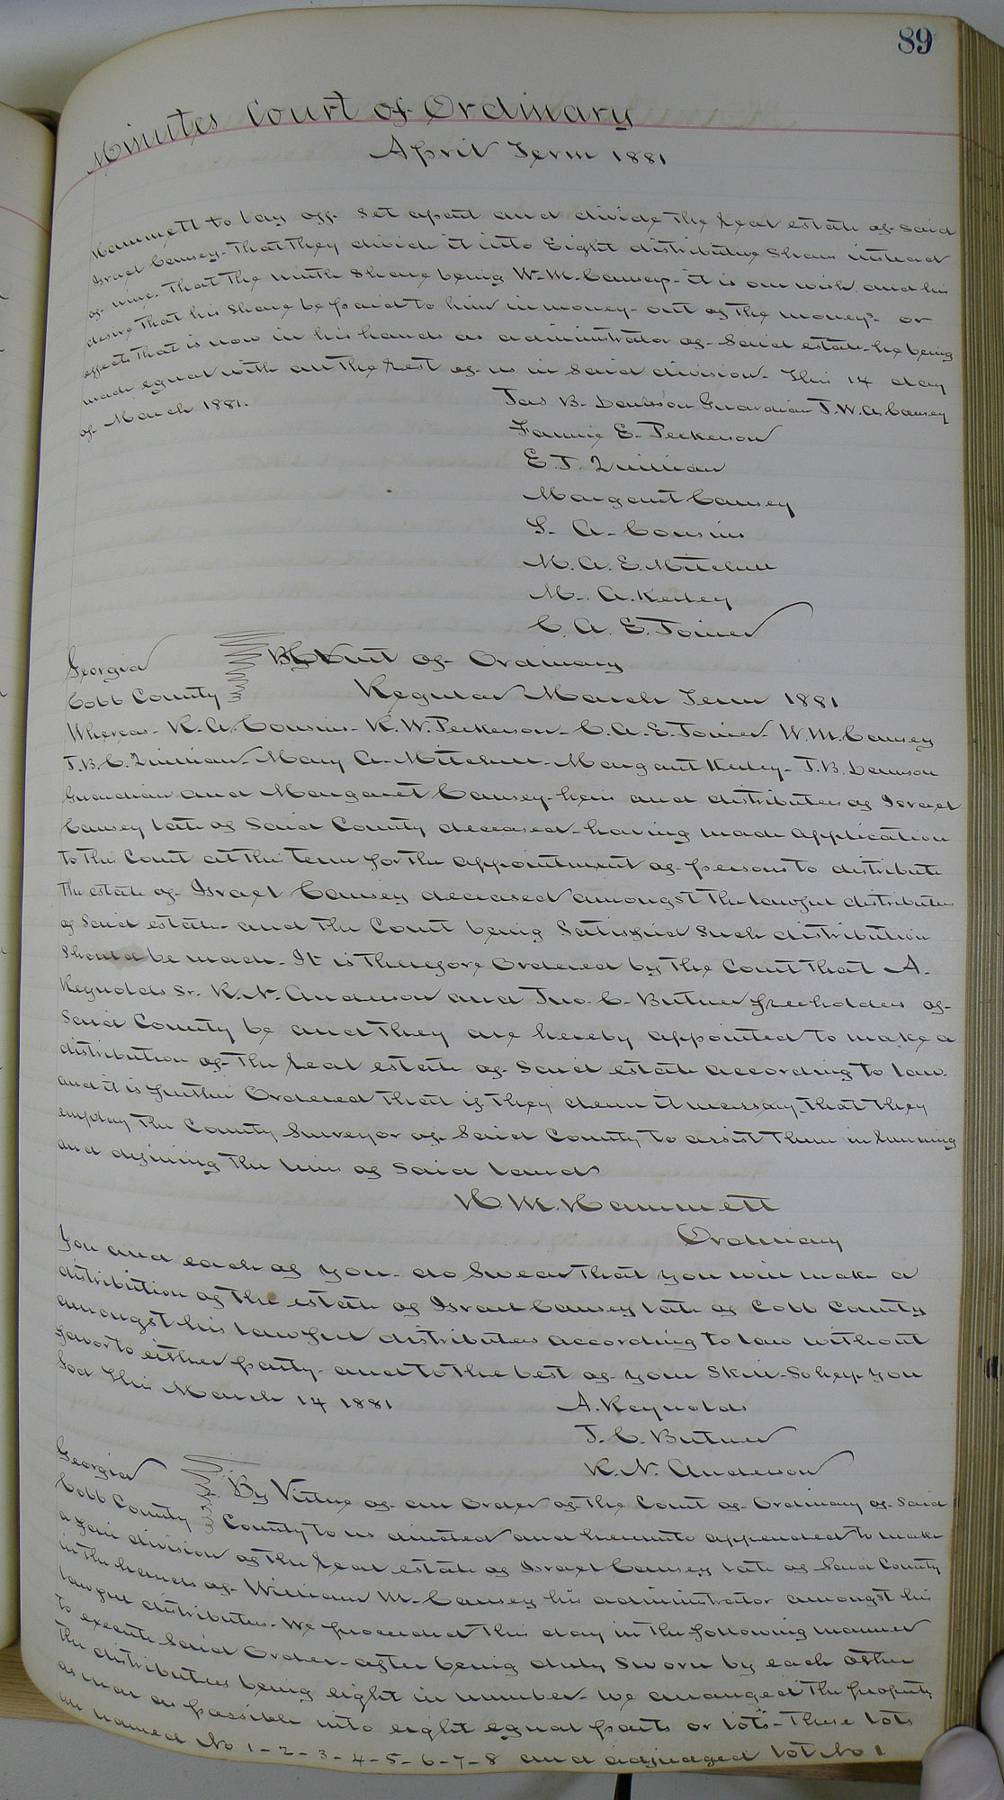 89
Minutes Court of Ordinary
April Term 1881
Hammett to lay off set apart and divide the real estate of said
Israel Causey. That they divide it into Eight distributive Shares instead
of nine. That the ninth Share being W. M. Causey. it is our wish and his
desire That his Share be paid to him in money out of the moneys or
effects That is now in his hands as administrator of said estate he being
made equal with all the rest of us in said division. This 14 day
of March 1881.
Jas B. Dawson Guardian J. W. A. Causey
Fannie E. Peekerson
E. J. Quinian
Margaret Causey
S. A. Cousins
M. A. E. Mitchell
M. A. Kelley
C. A. E. Joiner
Georgia
Cobb County
Court of Ordinary
Regular March Term 1881
Whereas R. A. Cousins R. W. Peekerson C. A. E. Joiner W. M. Causey
J. B. C. Quinian Mary A. Mitchell Margaret Kelley J. B. Dawson
Guardian and Margaret Causey heirs and distributees of Israel
Causey late of Said County deceased having made application
to this Court at this term for the appointment of persons to distribute
the estate of Israel Causey deceased amongst the lawful distributees
of said estate and the Court being Satisfied Such distribution
Should be made. It is Therefore Ordered by the Court That A.
Reynolds Sr. R. N. Anderson and Jno. C. Butner freeholders of
Said County be and they are hereby appointed to make a
distribution of the real estate of said estate according to law
and it is further Ordered that if they deem it necessary that they
employ the County Surveyor of Said County to assist them in running
and defining the lines of said lands
H. M. Hammett
Ordinary
You and each of you do Swear that you will make a
distribution of the estate of Israel Causey late of Cobb County
amongst his lawful distributees according to law without
favor to either party and to the best of your Skill So help you
God This March 14 1881
A. Reynolds
J. C. Butner
R. N. Anderson
Georgia
Cobb County
By Virtue of an order of the Court of Ordinary of said
County to us directed and hereunto appended to make
a fair division of the real estate of Israel Causey late of said County
in the hands of William M. Causey his administrator amongst his
lawful distributees. We proceeded this day in the following manner
to execute said Order after being duly Sworn by each other
the distributees being eight in number we arranged the property
as near as possible into eight equal parts or lots These lots
are named No 1-2-3-4-5-6-7-8 and adjudged lot No 1